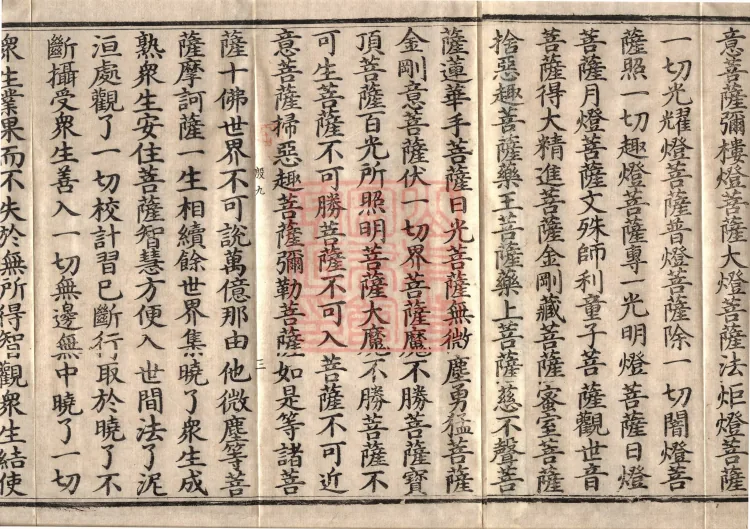 意菩薩彌樓燈菩薩大燈菩薩法炬燈菩薩
一切光耀燈菩薩普燈菩薩除一切闇燈菩
薩照一切趣燈菩薩專一光明燈菩薩日燈
菩薩月燈菩薩文殊師利童子菩薩觀世音
菩薩得大精進菩薩金剛藏菩薩蜜室菩薩
捨惡趣菩薩藥王菩薩藥上菩薩慈不聲菩
薩蓮華手菩薩日光菩薩無微塵勇猛菩薩
金剛意菩薩伏一切界菩薩魔不勝菩薩寶
頂菩薩百光所照明菩薩大魔不勝菩薩不
可生菩薩不可勝菩薩不可入菩薩不可近
意菩薩掃惡趣菩薩彌勒菩薩如是等諸菩
殷九 三
薩十佛世界不可說萬億那由他微塵等菩
薩摩訶薩一生相續餘世界集曉了眾生成
熟眾生安住菩薩智慧方便入世間法了泥
洹處觀了一切校計習已斷行取於曉了不
斷攝受眾生善入一切無邊無中曉了一切
眾生業果而不失於無所得智觀眾生結使